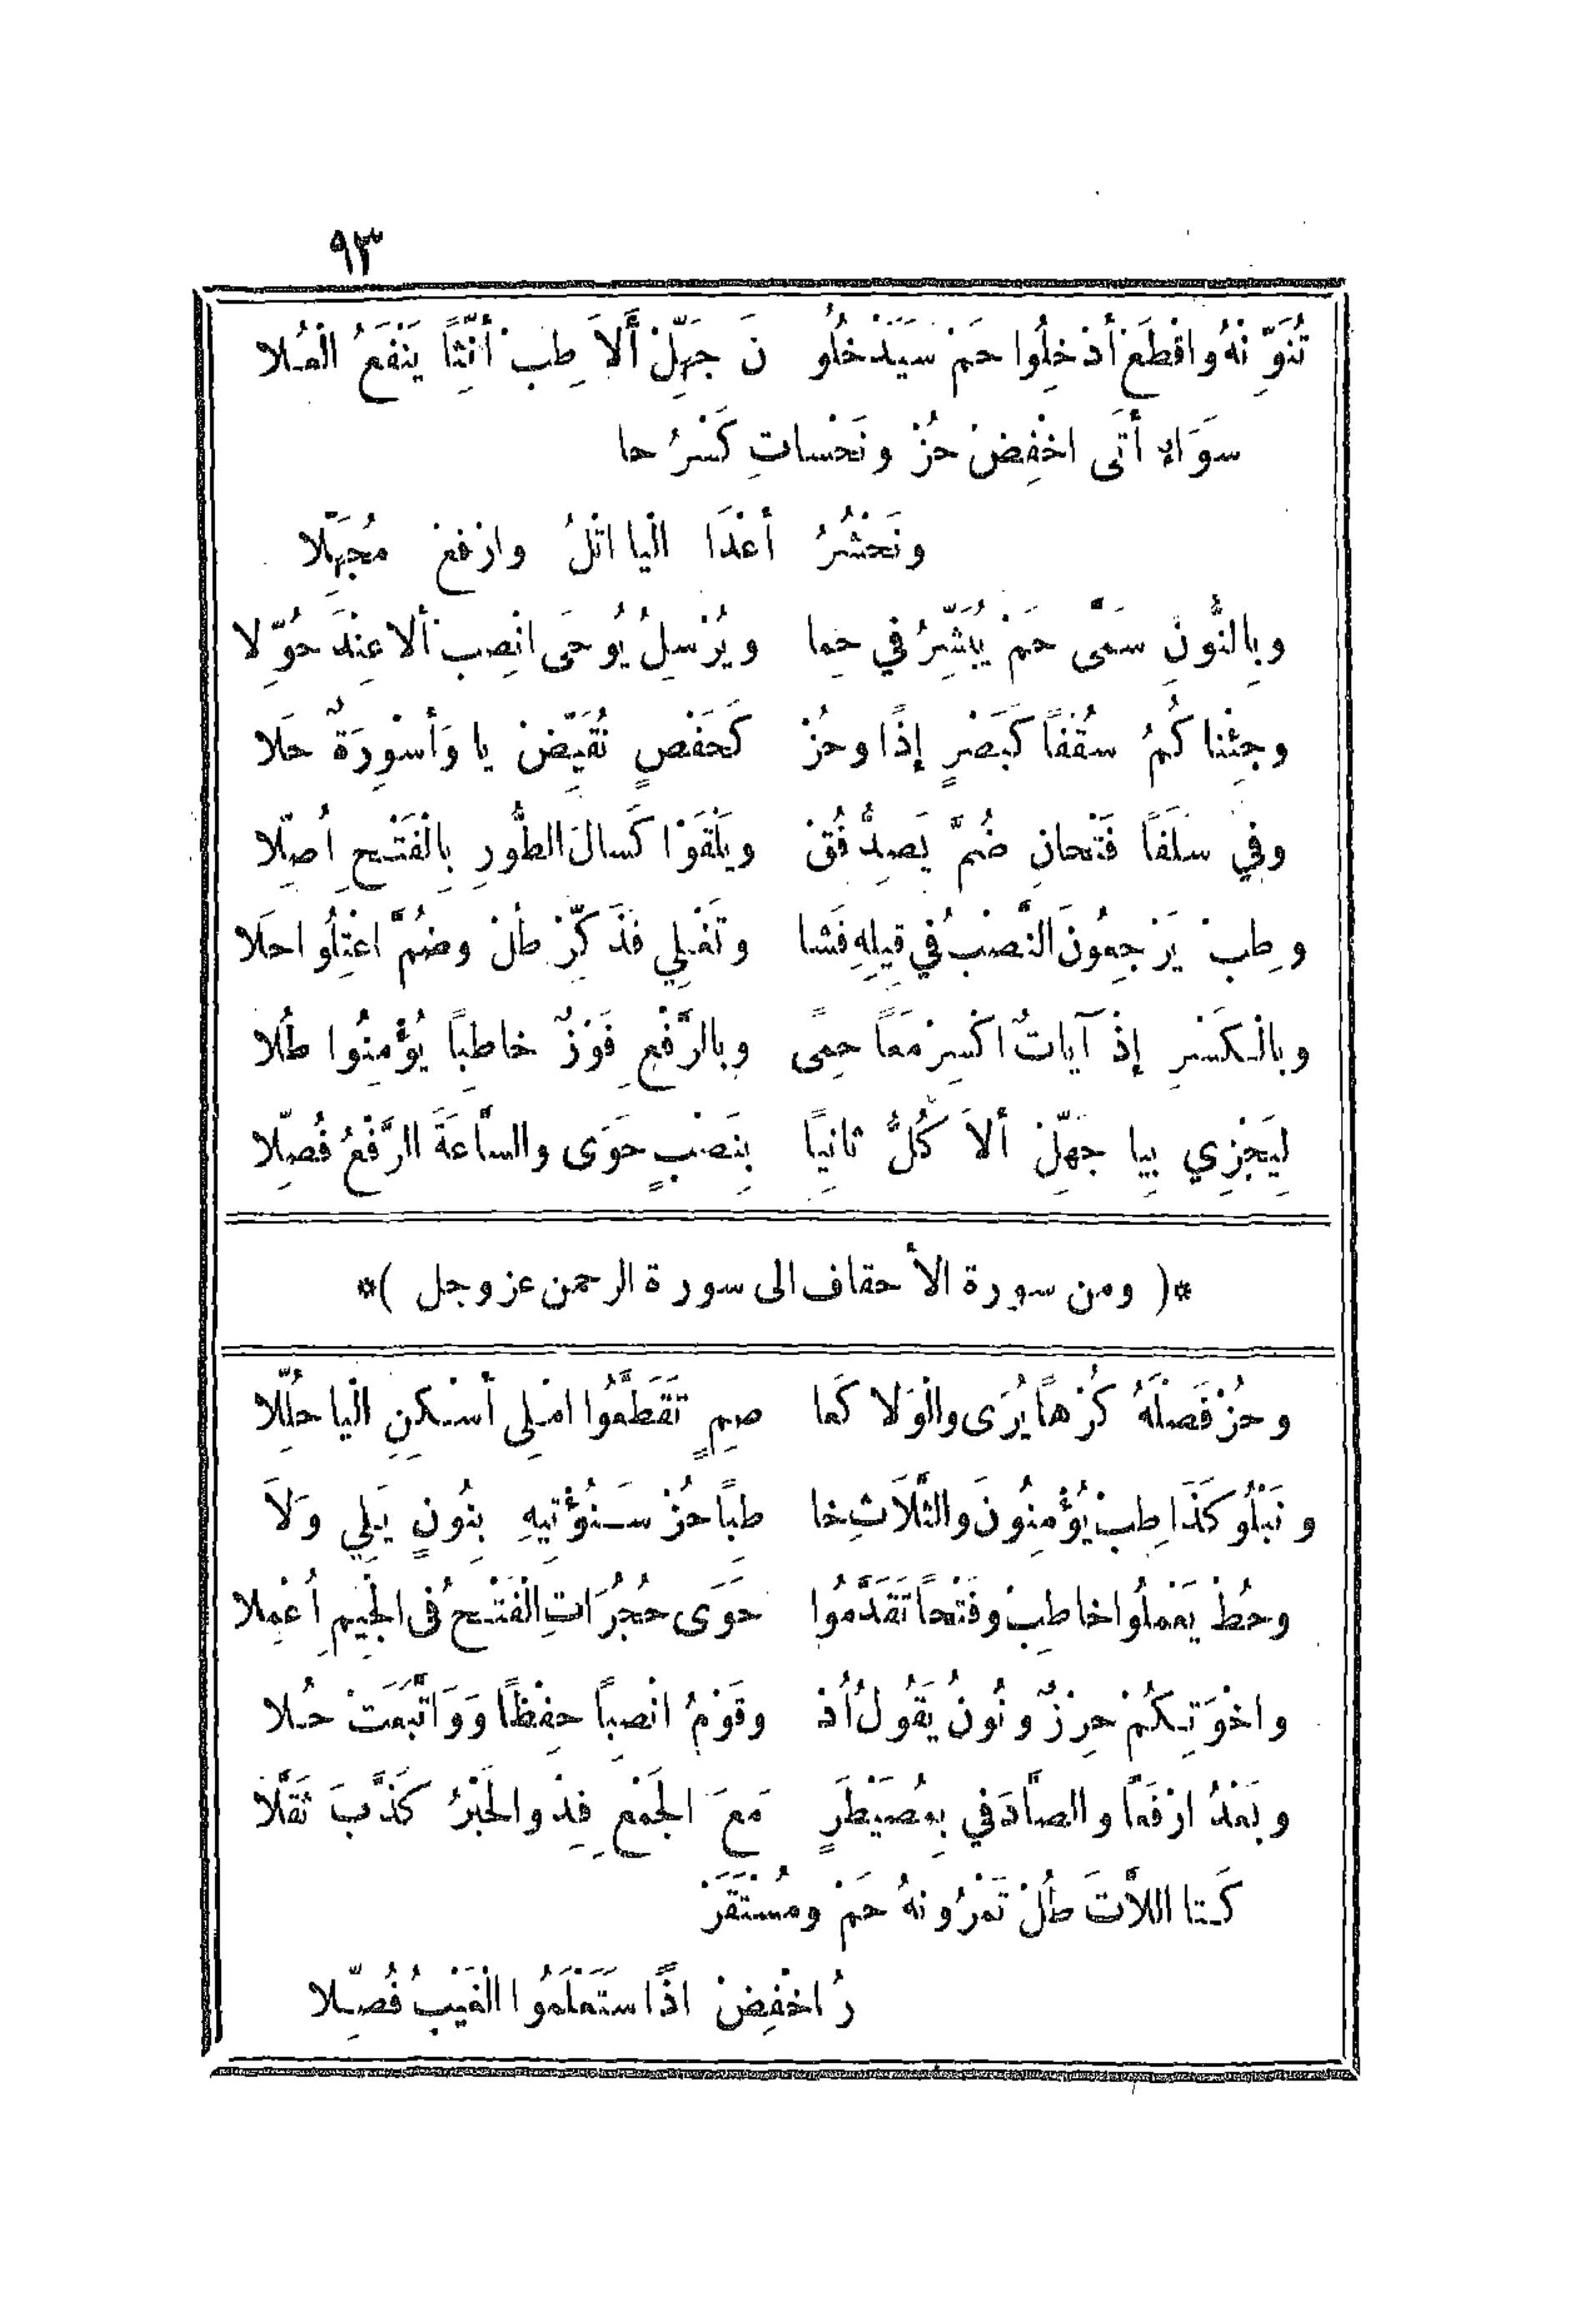 ٩٣
تُنَوِّنهُ واقْطَعْ أدْخِلُوا حَمْ سَيَدْخُلُو نَ جَهِّلْ أَلاَ طِبْ أنِّثاً يَنْفَعُ الْعُلا
سَوَاءٍ أتَى اخْفِضْ حُزْ ونَحْساتِ كَسْرُ حا
ونَحْشُرُ أعْدَا الْيا اتْلُ وارْفعْ مُجَهِّلا
وبِالنُّونِ سَمَّى حَمْ يُبَشِّرُ في حِما ويُرْسِلُ يُوحَى انْصِبْ ألا عِنْدَ حُوِّلا
وجِئْناكُمُ سُقْفاً كَبَصْرٍ إذًا وحُزْ كَحَفْصٍ نُقَيِّضْ يا وَأسْوِرَةٌ حلَا
وفي سَلَفاً فَتْحانِ ضُمَّ يَصِدُّ فُقْ ويَلْقَوْا كَسالَ الطُّورِ بِالْفَتْحِ أصِّلا
وطِبْ يَرْجِعُونَ النَّصْبُ في قِيلِهِ فَشا وتَغْلِي فذَكِّرْ طُلْ وضُمَّ اعْتِلُوا حلَا
وبالْكَسْرِ إذْ آيَاتٌ اكْسِرْ مَعاً حِمًى وبالرَّفْعِ فَوْزٌ خاطِبًا يُؤْمِنُوا طُلا
لِيَجْزِي بِيا جَهِّلْ ألاَ كُلُّ ثانِيًا بِنَصْبٍ حَوَى والسَّاعَةَ الرَّفْعُ فُصِّلا
*( ومن سورة الأحقاف الى سورة الرحمن عز وجل )*
وحُزْ فَصْلَهُ كُرْهاً يُرَى والْوَلا كَعا صِمٍ تَقَطَّعُوا امْلِى أسْكِنِ الْيا حلِّلا
ونَبْلُو كَذَا طِبْ يُؤْمِنُونَ والثَّلَاثِ خا طِبًا حُزْ سَنُؤْتِيهِ بِنُونٍ يَلِي وَلاَ
وحُطْ يَعْمَلُوا خاطِبْ وفَتْحاً تَقَدَّمُوا حَوَى حُجُرَاتِ الْفَتْحُ فى الجِيمِ أعْمِلا
واخْوَتِكُمْ حِرْزٌ ونُونُ يَقُولُ أُدْ وقَوْمُ انْصِباً حِفْظًا وَوَاتَّبَعَتْ حُلا
وبَعْدُ ارْفَعاً والصَّادَ في بِمُصَيْطِرٍ مَعَ الجَمْعِ فِدْ والحَبْرُ كَذَّبَ ثَقَّلا
كَتا اللاَّتَ طُلْ تَمْرُونهُ حَمْ ومُسْتَقَرْ
رُ اخْفِضْ اذًا سَتَعْلَمُوا الْغَيْبُ فُصِّلا